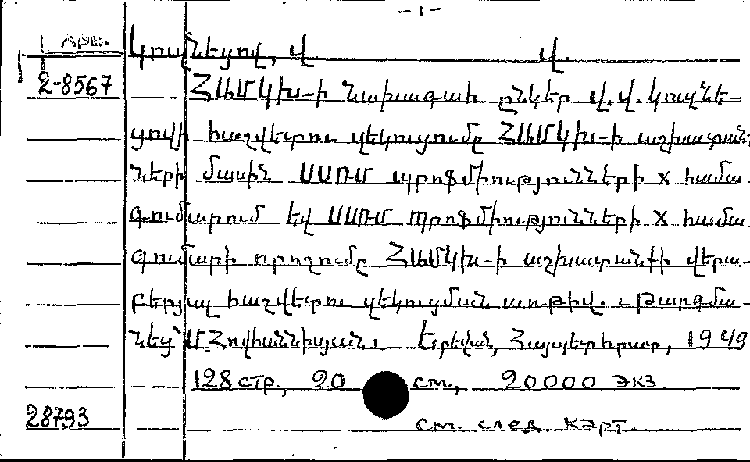 -1-
Արխ.
Կուզնեցով, Վ. Վ.
2-8567 ՀԱՄԿԽ-ի նախագահ ընկեր Վ.Վ. Կուզնե-
ցովի հաշվետու զեկուցումը ՀԱՄԿԽ-ի աշխատանք
ների մասին ՍՍՌՄ պրոֆմիությունների X համա-
գումարում եվ ՍՍՌՄ պրոֆմիությունների X համա-
գումարի որոշումը ՀԱՄԿԽ-ի աշխատանքի վերա-
բերյալ հաշվետու զեկուցման առթիվ. Թարգմա-
նեց՝ Մ. Հովհաննիսյան. Երեվան, Հայպետհրատ, 1949
128 стр., 20 см, 20000 экз.
28793 см. след. кэрт.